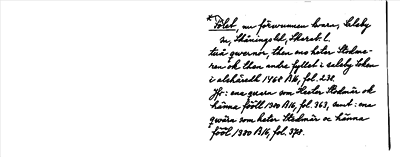 *Folet, nu försvunnen kvarn, Seleby
sn, Skånings hd, Skarab. l.
twå qwernor, then ene heter Stodme-
ren ok then andre follet i seleby soken
i alshäradh 1468 A 16, fol. 238.
Jfr: ena quern som heeter Stodmär ok
hänna fööll 1480 A 16, fol. 363, samt: ena
qwärn som heter Stodmär oc hänna
fööl 1480 A 16, fol. 378.